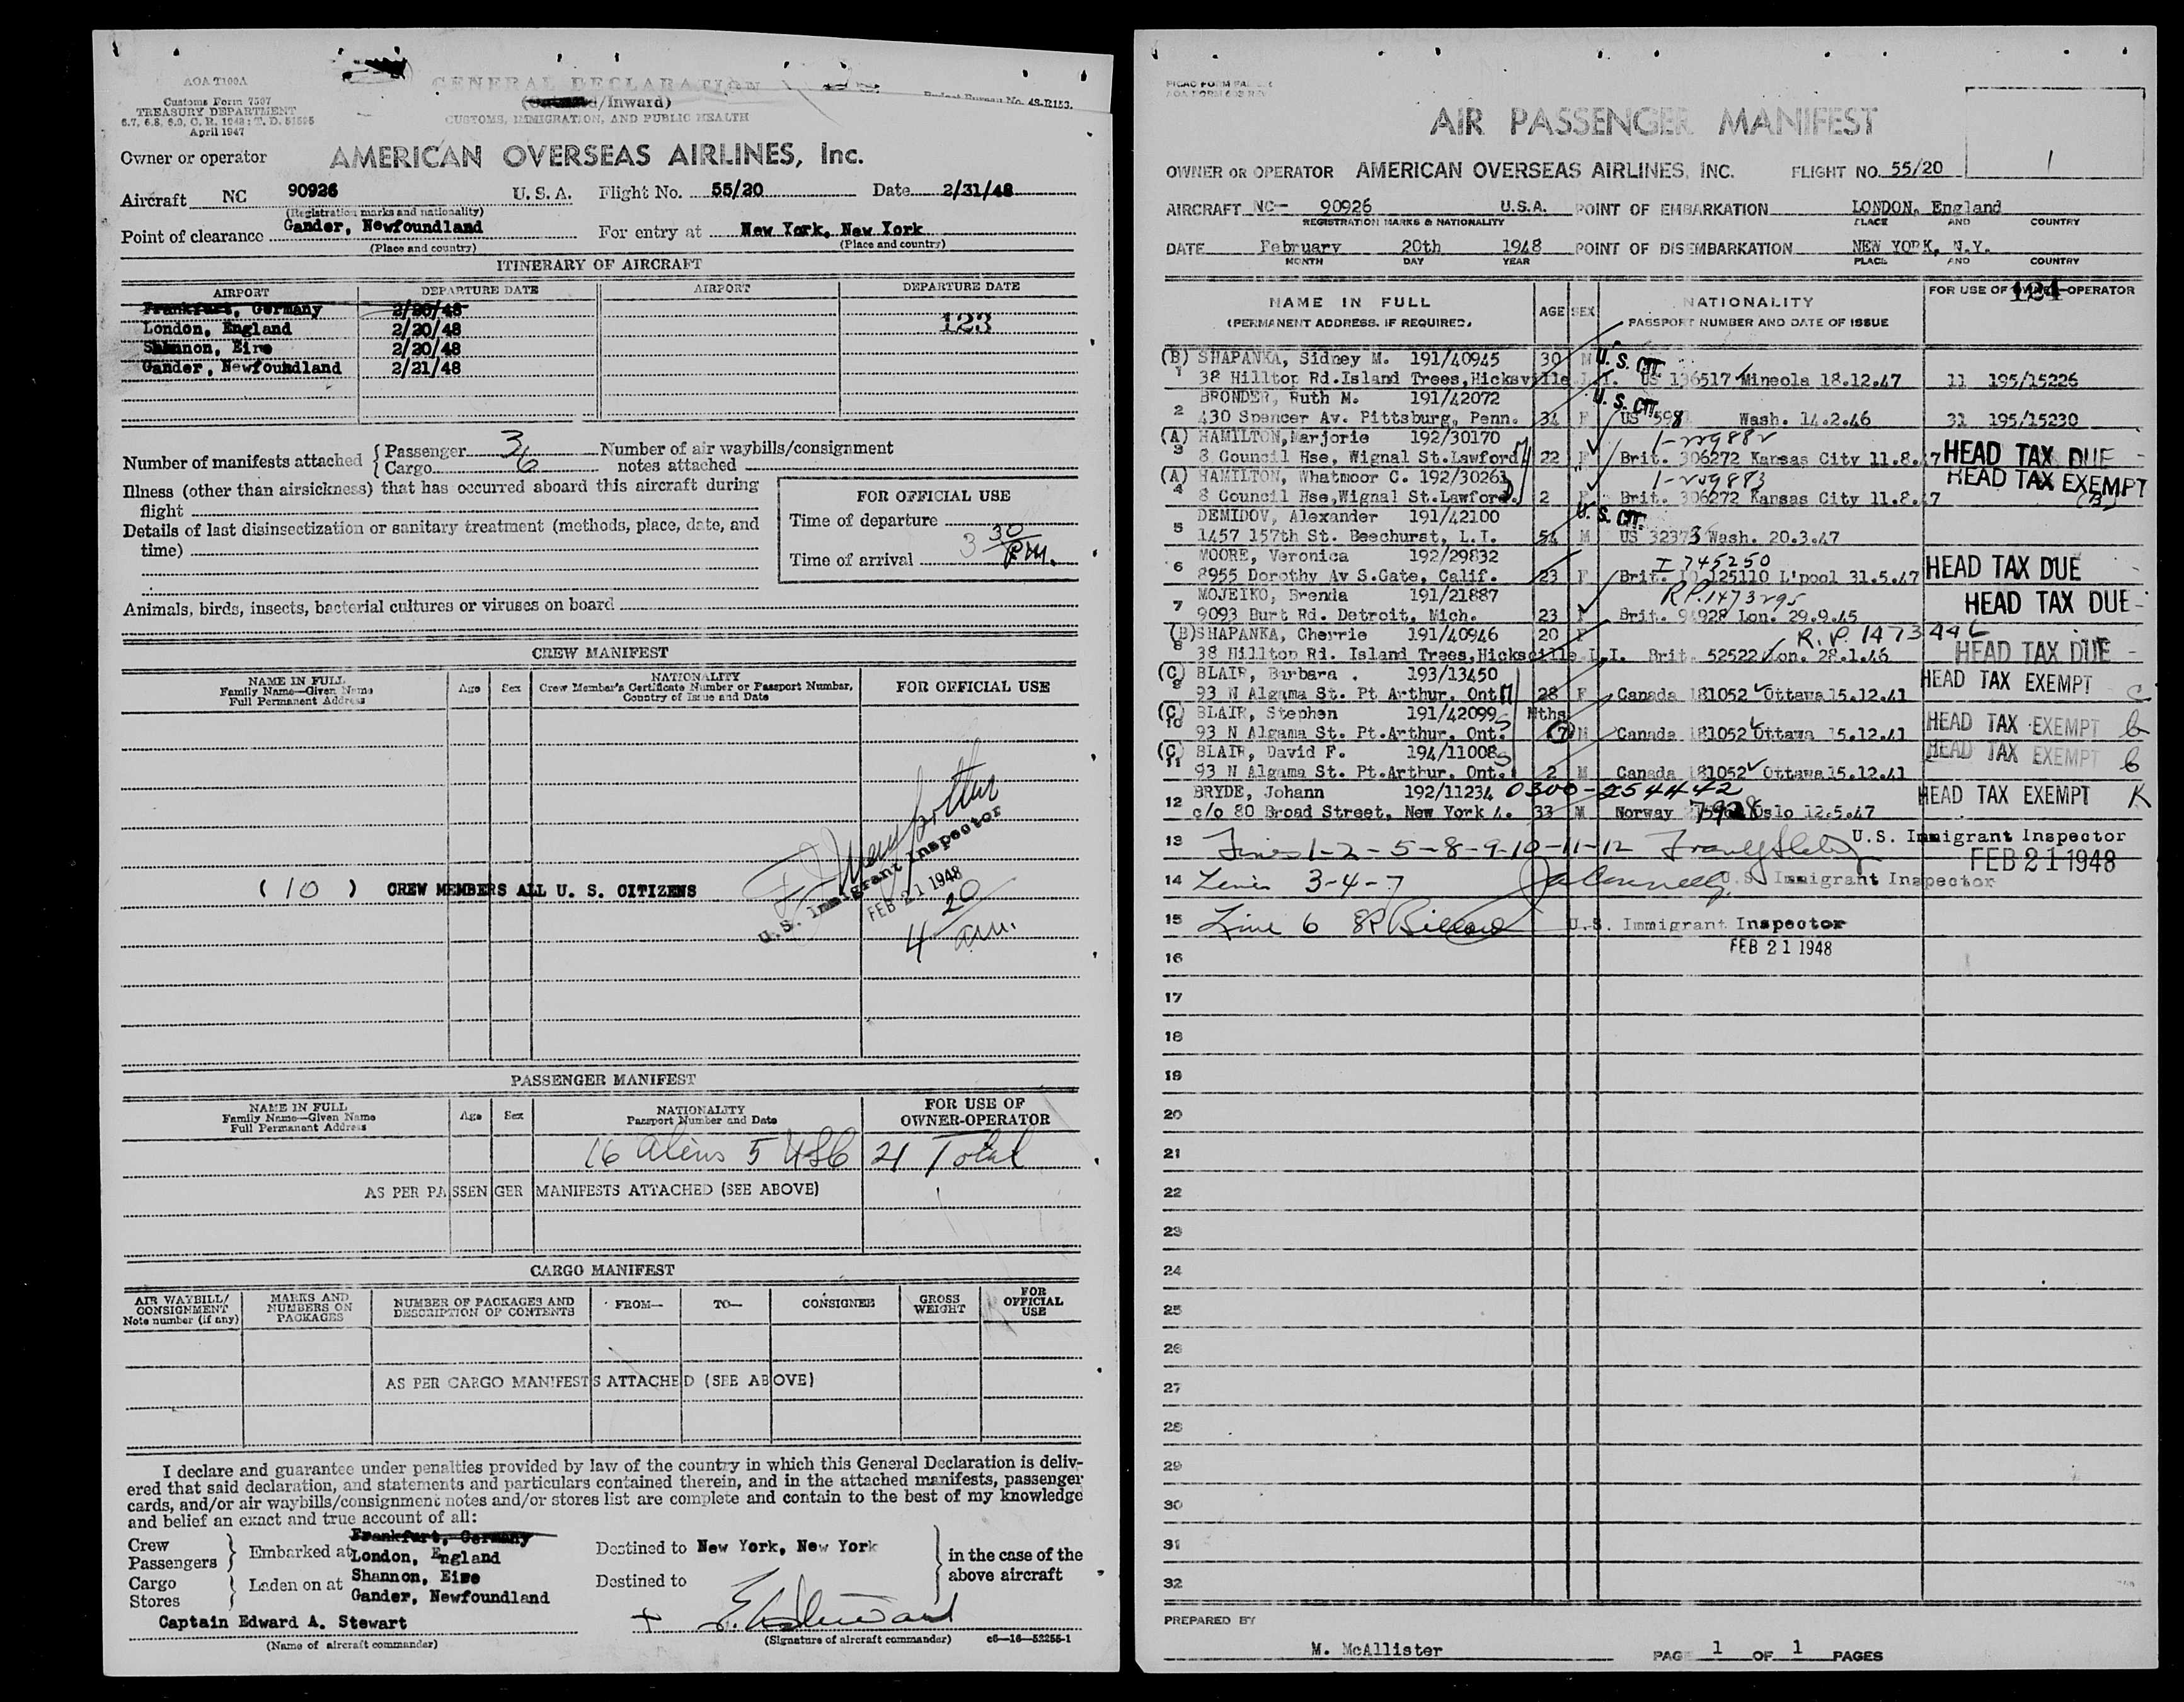 AOA T100A
Customs Form 7507
TREASURY DEPARTMENT
April 1947
GENERAL DECLARATION
/Inward)
CUSTOMS, IMMIGRATION, AND PUBLIC HEALTH
Budget Bureau No. 48-R153.
Owner or operator AMERICAN OVERSEAS AIRLINES, Inc.
Aircraft NC 90926 U. S. A. Flight No. 55/20 Date 2/31/48
(Registration marks and nationality)
Point of clearance Gander, Newfoundland For entry at New York, New York
(Place and country) (Place and country)
ITINERARY OF AIRCRAFT
AIRPORT DEPARTURE DATE AIRPORT DEPARTURE DATE
Frankfurt, Germany 2/20/48
London, England 2/20/48 123
Shannon, Eire 2/20/48
Gander, Newfoundland 2/21/48
Number of manifests attached { Passenger 3 Number of air waybills/consignment
Cargo 6 notes attached
Illness (other than airsickness) that has occurred aboard this aircraft during
flight
Details of last disinsectization or sanitary treatment (methods, place, date, and
time)
FOR OFFICIAL USE
Time of departure
Time of arrival 3 30 P.M.
Animals, birds, insects, bacterial cultures or viruses on board
CREW MANIFEST
NAME IN FULL
Family Name—Given Name
Full Permanent Address
Age Sex
NATIONALITY
Crew Member's Certificate Number or Passport Number,
Country of Issue and Date
FOR OFFICIAL USE
( 10 ) CREW MEMBERS ALL U. S. CITIZENS
U. S. Immigrant Inspector
FEB 21 1948
4 20 am.
PASSENGER MANIFEST
NAME IN FULL
Family Name—Given Name
Full Permanent Address
Age Sex
NATIONALITY
Passport Number and Date
FOR USE OF
OWNER-OPERATOR
16 aliens 5 USC 21 Total
AS PER PASSENGER MANIFESTS ATTACHED (SEE ABOVE)
CARGO MANIFEST
AIR WAYBILL/
CONSIGNMENT
Note number (if any)
MARKS AND
NUMBERS ON
PACKAGES
NUMBER OF PACKAGES AND
DESCRIPTION OF CONTENTS
FROM— TO— CONSIGNEE
GROSS
WEIGHT
FOR
OFFICIAL
USE
AS PER CARGO MANIFESTS ATTACHED (SEE ABOVE)
I declare and guarantee under penalties provided by law of the country in which this General Declaration is deliv-
ered that said declaration, and statements and particulars contained therein, and in the attached manifests, passenger
cards, and/or air waybills/consignment notes and/or stores list are complete and contain to the best of my knowledge
and belief an exact and true account of all:
Frankfurt, Germany
Crew
Passengers } Embarked at London, England Destined to New York, New York
Cargo
Stores } Laden on at Shannon, Eire Destined to
Gander, Newfoundland
in the case of the
above aircraft
Captain Edward A. Stewart
(Name of aircraft commander)
+ E. A. Stewart
(Signature of aircraft commander) c6—16—52255-1
AIR PASSENGER MANIFEST
1
OWNER OR OPERATOR AMERICAN OVERSEAS AIRLINES, INC. FLIGHT NO. 55/20
AIRCRAFT NC- 90926 U.S.A. POINT OF EMBARKATION LONDON, England
REGISTRATION MARKS & NATIONALITY PLACE AND COUNTRY
DATE February 20th 1948 POINT OF DISEMBARKATION NEW YORK, N.Y.
MONTH DAY YEAR PLACE AND COUNTRY
NAME IN FULL
(PERMANENT ADDRESS, IF REQUIRED)
AGE SEX
NATIONALITY
PASSPORT NUMBER AND DATE OF ISSUE
FOR USE OF OWNER-OPERATOR
124
(B) SHAPANKA, Sidney M. 191/40945 30 M U. S. CIT.
1 38 Hilltop Rd.Island Trees,Hicksville L.I. US 136517 Mineola 18.12.47 11 195/15226
BRONDER, Ruth M. 191/42072 U. S. CIT.
2 430 Spencer Av. Pittsburg, Penn. 34 F US 598 Wash. 14.2.46 31 195/15230
(A) HAMILTON,Marjorie 192/30170
3 8 Council Hse, Wignal St.Lawford 22 F Brit. 306272 Kansas City 11.8.47 HEAD TAX DUE
(A) HAMILTON, Whatmoor C. 192/30261
4 8 Council Hse,Wignal St.Lawford. 2 F Brit. 306272 Kansas City 11.8.47 HEAD TAX EXEMPT (B)
DEMIDOV, Alexander 191/42100 U. S. CIT.
5 1457 157th St. Beechurst, L.I. 54 M US 32373 Wash. 20.3.47
MOORE, Veronica 192/29832 I 745250
6 8955 Dorothy Av S.Gate, Calif. 23 F Brit. 125110 L'pool 31.5.47 HEAD TAX DUE
MOJEIKO, Brenda 191/21887 R.P.1473295
7 9093 Burt Rd. Detroit, Mich. 23 F Brit. 94928 Lon. 29.9.45 HEAD TAX DUE
(B)SHAPANKA, Cherrie 191/40946 20 F R.P. 1473446
8 38 Hilltop Rd. Island Trees,Hicksville L.I. Brit. 52522 Lon. 28.1.46 HEAD TAX DUE
(C) BLAIR, Barbara . 193/13450
9 93 N Algama St. Pt Arthur, Ont 28 F Canada 181052 Ottawa 15.12.41 HEAD TAX EXEMPT C
(C) BLAIR, Stephen 191/42099 Mths
10 93 N Algama St. Pt.Arthur, Ont. 7 M Canada 181052 Ottawa 15.12.41 HEAD TAX EXEMPT
(C) BLAIR, David F. 194/11008
11 93 N Algama St. Pt.Arthur, Ont. 2 M Canada 181052 Ottawa 15.12.41 HEAD TAX EXEMPT
BRYDE, Johann 192/11234 0300-254442
12 c/o 80 Broad Street, New York 4. 33 M Norway Oslo 12.5.47 HEAD TAX EXEMPT K
13 Lines 1-2-5-8-9-10-11-12 U.S. Immigrant Inspector
FEB 21 1948
14 Lines 3-4-7 U.S. Immigrant Inspector
15 Line 6 U.S. Immigrant Inspector
FEB 21 1948
16
17
18
19
20
21
22
23
24
25
26
27
28
29
30
31
32
PREPARED BY
M. McAllister PAGE 1 OF 1 PAGES